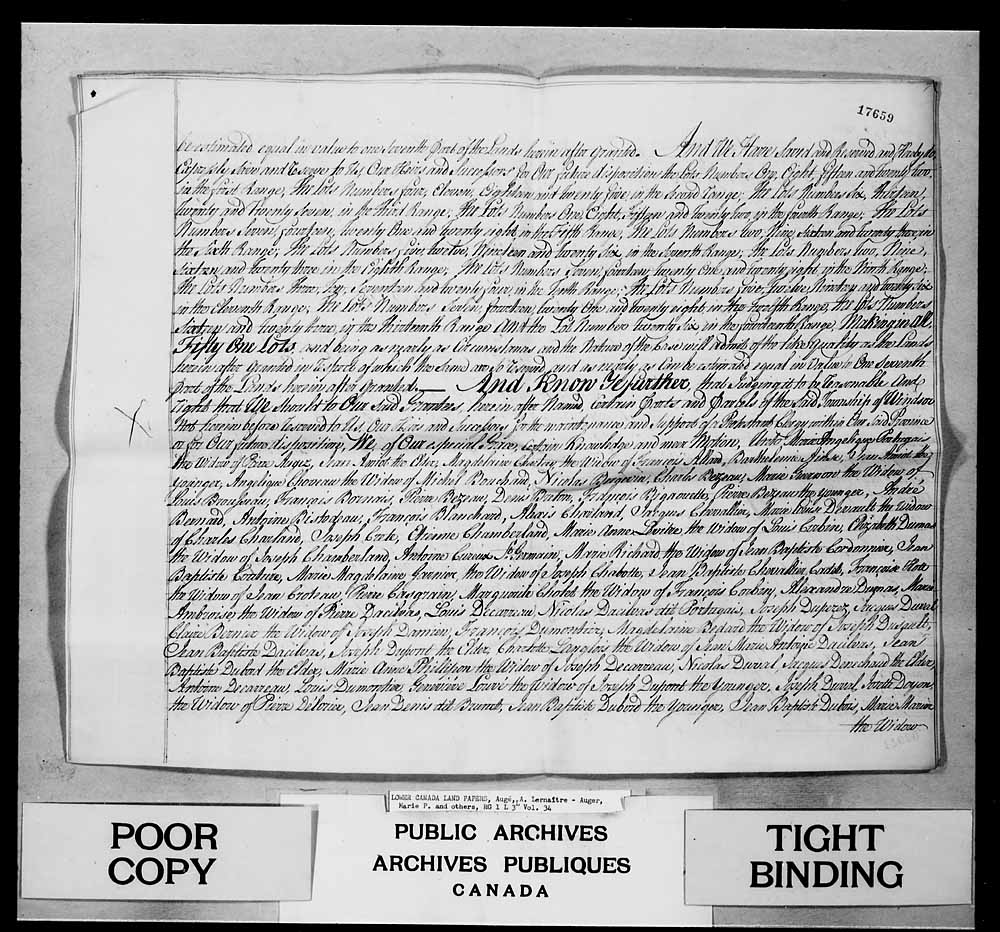 17659
be estimated equal in value to one seventh Part of the Lands herein after granted. And We Have Saved and Reserved, and Hereby do
Expressly Save and Reserve to Us, Our Heirs and Successors for Our future disposition the Lots Numbers One, Eight, Fifteen and twenty two,
in the first Range; The Lots Numbers four, Eleven, Eighteen and twenty five, in the Second Range; The Lots Numbers Six, thirteen,
twenty and twenty Seven, in the Third Range; The Lots Numbers One, Eight, Fifteen and twenty two, in the fourth Range; The Lots
Numbers Seven, fourteen, twenty One and twenty eight, in the Fifth Range; The Lots Numbers two, Nine, Sixteen and twenty three, in
the Sixth Range; The Lots Numbers five, twelve, Nineteen and twenty Six, in the Seventh Range; The Lots Numbers Two, Nine,
Sixteen, and twenty three, in the Eighth Range; The Lots Numbers Seven, fourteen, twenty One and twenty eight, in the Ninth Range;
The Lots Numbers Three, Ten, Seventeen and twenty four, in the Tenth Range; The Lots Numbers five, twelve, Nineteen and twenty Six
in the Eleventh Range; The Lots Numbers Seven, fourteen, twenty One, and twenty eight, in the twelfth Range; The Lots Numbers
Sixteen and twenty three, in the thirteenth Range And the Lot Number twenty Six, in the fourteenth Range, Making in All
Fifty One Lots, and being as nearly as Circumstances and the Nature of the Case will admit of the like Quality as the Lands
herein after granted in respect of which the Same are so reserved, and as nearly as Can be estimated equal in Value to One Seventh
part of the Lands herein after granted. And Know Ye further, that Judging it to be Reasonable And
Right that We Should to Our said Grantees, herein after Named, Certain Parts and Parcels of the Said Township of Windsor
Not herein before reserved to Us, Our Heirs and Successors for the maintenance and Support of a Protestant Clergy within Our Said Province
or for Our future disposition, We, of Our especial Grace, certain Knowledge and mere Motion, Unto Marie Angelique Portugais
the Widow of Pierre Augez, Jean Amiot the Elder, Magdelaine the Widow of François Allard, Barthelemie, Jean Amiot the
Younger, Angelique the Widow of Michel Bouchard, Nicolas Bergevin, Charles Bezeau, Marie the Widow of
Louis Brousseau, François Bornais, Pierre Bezeau, Denis Breton, François Bigaouette, Pierre Bezeau the younger, André
Bernard, Antoine Bistodeau, François Blanchard, Alexis Cloutier, Jacques Chevallier, Marie Louise the Widow
of Charles Charland, Joseph Coté, Etienne Chamberland, Marie Anne the Widow of Louis Corbin, Elizabeth Dumas
the Widow of Joseph Chamberland, Antoine Cureux St. Germain, Marie Richard the Widow of Jean Baptiste Cordonnier, Jean
Baptiste Corbin, Marie Magdelaine Garnier, the Widow of Joseph Chabotte, Jean Baptiste Chevallier, Cadet, Françoise
the Widow of Jean Croteau, Pierre Casgrain, Marguerite the Widow of François Corbin, Alexandre Dugas, Marie
Ambroise the Widow of Pierre Decileus, Louis Décarreau, Nicolas Decileus dit Portugais, Joseph Duperé, Jacques Duval,
Claire Bernier the Widow of Joseph Damien, François Dumontier, Magdelaine Bedard the Widow of Joseph
Jean Baptiste Decileus, Joseph Dupont the Elder, Charlotte Langlois the Widow of Jean Marie Antoine Decileus, Jean
Baptiste Dubord the Elder, Marie Anne Philippon the Widow of Joseph Decarreau, Nicolas Duval, Jacques Danschaud the Elder
Antoine Decarreau, Louis Dumontier, Geneviève the Widow of Joseph Dupont the Younger, Joseph Duval, Josette
the Widow of Pierre Delorier, Jean Denis dit Burrat, Jean Baptiste Dubord the Younger, Jean Baptiste Dubois, Marie
the Widow
LOWER CANADA LAND PAPERS, Augé, A. Lemaître - Auger,
Marie P. and others, RG 1 L 3" Vol. 34
POOR
COPY
PUBLIC ARCHIVES
ARCHIVES PUBLIQUES
CANADA
TIGHT
BINDING